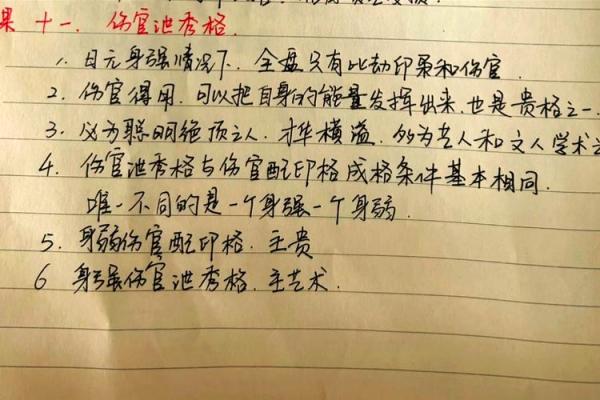 果 十一、伤官泄秀格
1. 日元身强情况下，全盘只有比劫印枭和伤官
2. 伤官得用，可以把自身的能量发挥出来，也是贵格之一.
3. 必为聪明绝顶之人，才华横溢，多为艺人和文人学术之
4. 伤官泄秀格与伤官配印格成格条件基本相同.
唯一不同的是一个身强一个身弱.
5. 身弱伤官配印格. 主贵
6 身强伤官泄秀格. 主艺术.